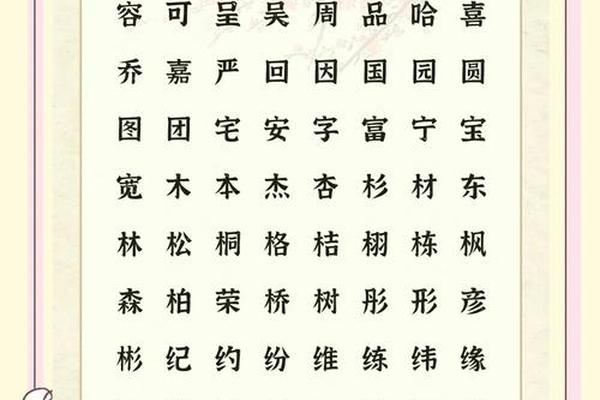 容 可 呈 吴 周 品 哈 喜
乔 嘉 严 回 因 国 园 圆
图 团 宅 安 字 富 宁 宝
宽 木 本 杰 杏 杉 材 东
林 松 桐 格 桔 栩 栋 枫
森 柏 荣 桥 树 彤 形 彦
彬 纪 约 纷 维 练 纬 缘